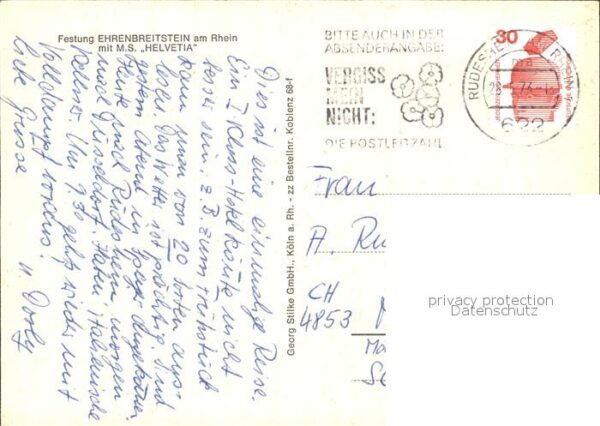 Festung EHRENBREITSTEIN am Rhein
mit M.S. „HELVETIA"
BITTE AUCH IN DER
ABSENDERANGABE:
VERGISS
MEIN
NICHT:
DIE POSTLEITZAHL
30
RÜDESHEIM RHEIN 1
622
Dies ist eine einmalige Reise.
Ein I Klass-Hotel könnte nicht
besser sein, z.B zum Frühstück
kann man von 20 Sorten aus-
lesen. Das Wetter ist prächtig. Sind
gestern Abend in Speyer
Heute in Rüdesheim, morgen
nach Düsseldorf. Haben Italienische
Kellner. Um 9.30 geht's wieder mit
Volldampf voraus.
Liebe Grüsse
u. Dorly
Georg Stilke GmbH., Köln a. Rh. - zz Bestellnr. Koblenz 68-f
Frau
A. Ru
CH
4853
privacy protection
Datenschutz